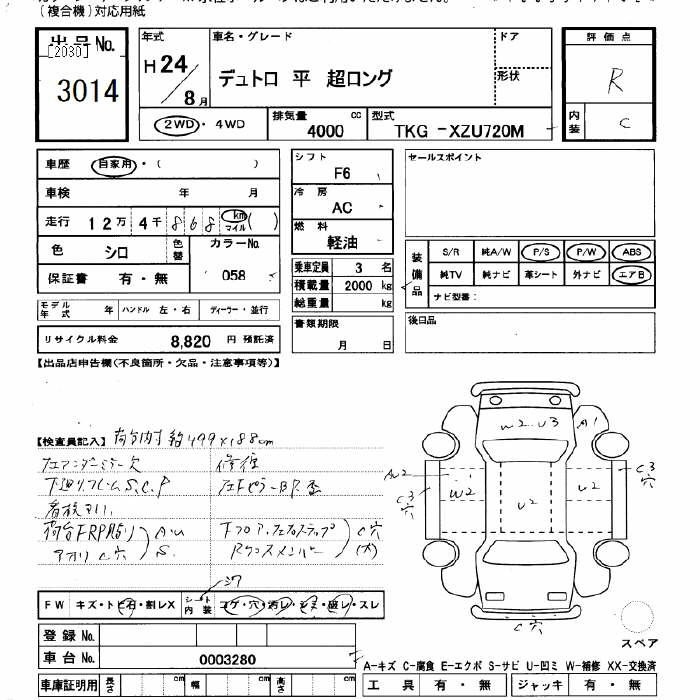 (複合機)対応用紙
出品No.
[2030]
3014
年式
H24/8月
車名・グレード
デュトロ 平 超ロング
ドア
形状
2WD・4WD
排気量
4000 cc
型式
TKG-XZU720M
評価点
R
内装
C
車歴 自家用・( )
車検 年 月
走行 12万 4千 868 km マイル ( )
色 シロ 色替
カラーNo.
058
保証書 有・無
シフト
F6
冷房
AC
燃料
軽油
乗車定員 3 名
積載量 2000 kg
総重量 kg
書類期限
月 日
セールスポイント
装備品
S/R 純A/W P/S P/W ABS
純TV 純ナビ 革シート 外ナビ エアB
ナビ型番:
後日品
モデル年式 年 ハンドル 左・右 ディーラー・並行
リサイクル料金 8,820 円 預託済
【出品店申告欄(不良箇所・欠品・注意事項等)】
【検査員記入】荷台内寸 約499×188cm
左アンダーミラー欠
修復
下廻りフレームS.C.P
看板
荷台FRP貼り A.U
C穴 S.
C穴
(大)
W2 U3 A1
AU2 C3穴 W2 U2 U2 C3穴
C穴
シワ
FW キズ・トビ石・割レX
シート内装 コゲ・穴・汚レ・シミ・破レ・スレ
登録No.
車台No. 0003280
車庫証明用 長さ 幅 高さ
スペア
A-キズ C-腐食 E-エクボ S-サビ U-凹ミ W-補修 XX-交換済
工具 有・無 ジャッキ 有・無